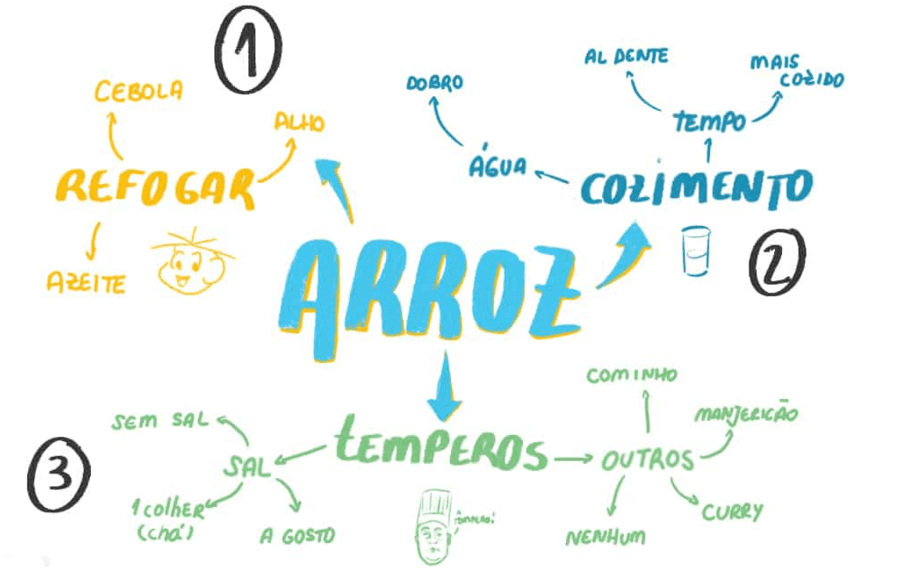 1
CEBOLA
ALHO
REFOGAR
AZEITE
DOBRO
AL DENTE
MAIS
COZIDO
TEMPO
ÁGUA
COZIMENTO
2
ARROZ
3
TEMPEROS
SEM SAL
SAL
1 colher
(chá)
A GOSTO
COMINHO
MANJERICÃO
OUTROS
NENHUM
CURRY